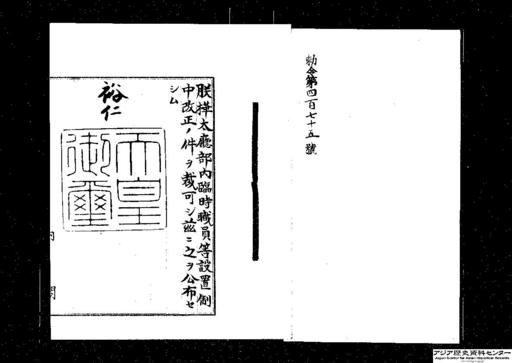 勅令第四百七十五號
朕樺太廳部内臨時職員等設置制
中改正ノ件ヲ裁可シ茲ニ之ヲ公布セ
シム
裕仁
天皇
御璽
内閣
アジア歴史資料センター
Japan Center for Asian Historical Records